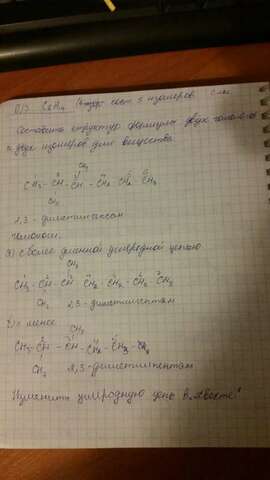 Составить структур формулы двух гомологов
и двух изомеров для вещества
CH3
CH3 - CH - CH - CH2 - CH2 - CH3
CH3
2,3 - диметилгексан
Гомологи:
а) с более длинной углеродной цепью
CH3
CH3 - CH - CH - CH2 - CH2 - CH2 - CH3
CH3 2,3-диметилгептан
менее
CH3
CH3 - CH - CH - CH2 - CH2 - CH3
CH3 2,3-диметилпентан
Изменить углеродную цепь в "хвосте"